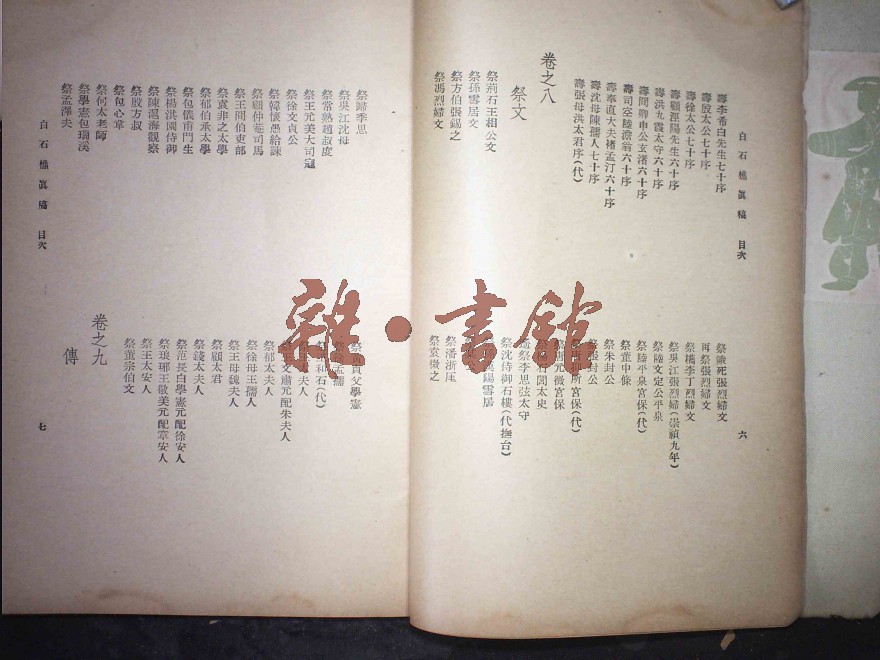 白石樵眞稿 目次
六
壽李希白先生七十序
壽殷太公七十序
壽徐太公七十序
壽顧涇陽先生六十序
壽洪九霞太守六十序
壽問卿申公玄渚六十序
壽司空陸澹翁六十序
奉直大夫褚孟汀六十序
壽沈母陳孺人七十序
壽張母洪太君序(代)
卷之八
祭文
祭荊石王相公文
祭孫雪居文
祭方伯張錫之
祭馮烈婦文
祭餓死張烈婦文
再祭張烈婦文
祭檇李丁烈婦文
祭吳江張烈婦(崇禎九年)
祭陸文定公平泉
祭陸平泉宮保(代)
祭董中條
祭朱封公
封公
宮保(代)
元徵宮保
石閭太史
祭李思弦太守
祭沈侍御石樓(代撫台)
錫雪居
祭潘浙
祭袁微之
祭歸季思
祭吳江沈母
祭常熟趙叔度
祭王元美大司寇
祭徐文貞公
祭韓懷愚給諫
祭顧仲菴司馬
祭王問伯吏部
祭袁非之太學
祭郁伯承太學
祭包儀甫門生
祭楊洪園侍御
祭陳滬海觀察
祭殷方叔
祭包心韋
祭何太老師
祭學憲包瑞溪
祭孟澤夫
貞父學憲
孺
石(代)
夫人
文肅元配朱夫人
祭郁太夫人
祭徐母王孺人
祭王母魏夫人
祭顧太君
祭錢太夫人
祭范長白學憲元配徐安人
祭琅琊王敬美元配章安人
祭王太安人
祭董宗伯文
卷之九
傳
白石樵眞稿 目次
七
雜·書館